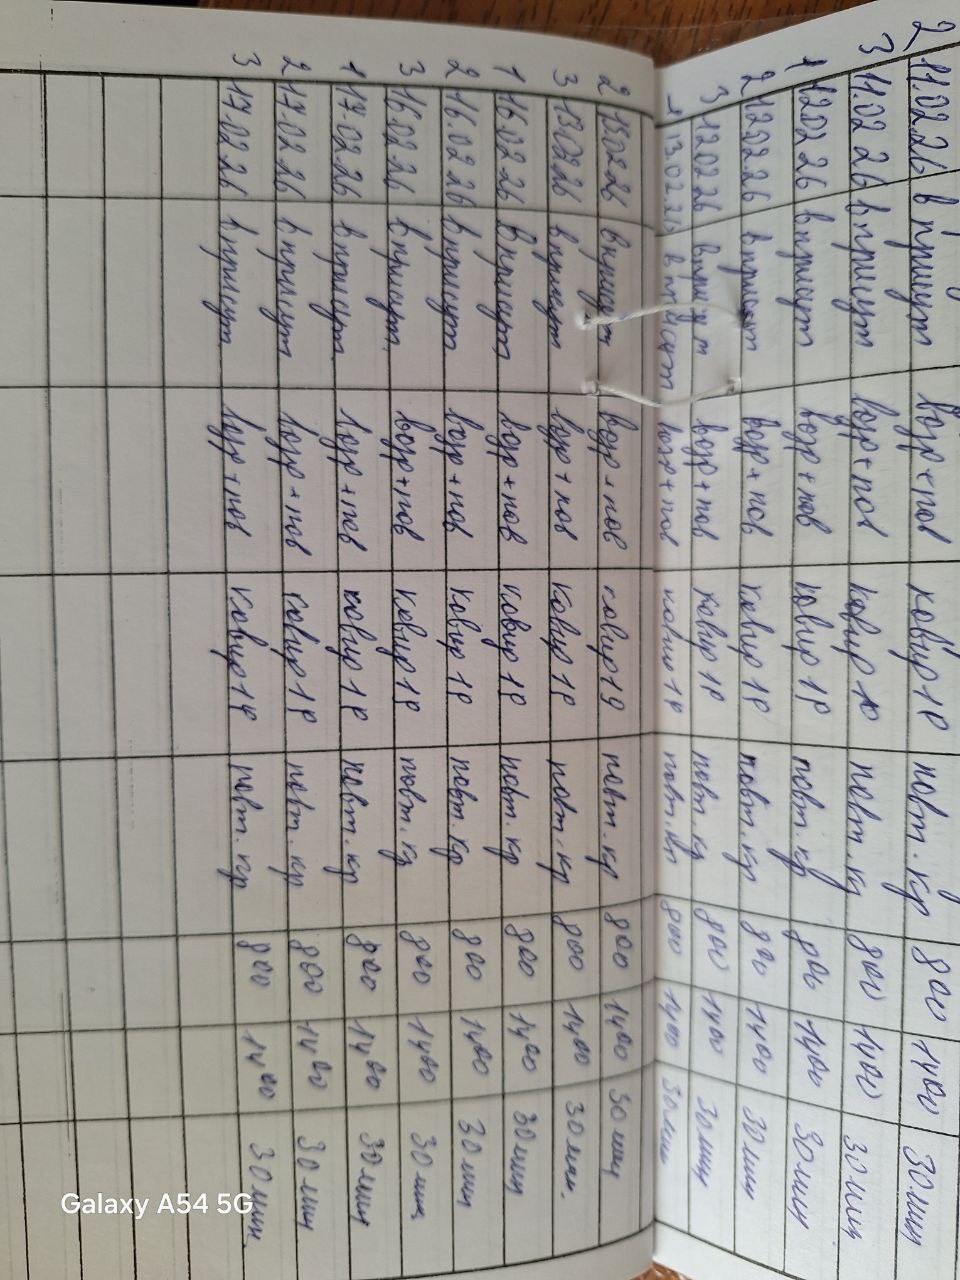 2 11.02.26 в присут возр + пов кабир 1 р повт. кр 800 1400 30 мин
3 11.02 26 в присут возр + пов кабир 1 повт. кр 800 1400 30 мин
1 12 02 26 в присут возр + пов кабир 1 р повт. кр 800 1400 30 мин
2 12 02 26 в присут возр + пов кабир 1 р повт. кр 800 1400 30 мин
3 12 02 26 в присут возр + пов кабир 1 р повт. кр 800 1400 30 мин
1 13.02.26 в присут возр + пов кабир 1 р повт кр 800 1400 30 мин
2 13 02 26 в присут возр + пов кабир 1 р повт. кр 800 1400 30 мин
3 13 02 26 в присут возр + пов кабир 1 р повт. кр 800 1400 30 мин.
1 16.02.26 в присут возр + пов кабир 1 р повт. кр 800 1400 30 мин
2 16.02 26 в присут возр + пов кабир 1 р повт. кр 800 1400 30 мин
3 16.02.26 в присут возр + пов кабир 1 р повт. кр 800 1400 30 мин
1 17.02.26 в присут возр + пов кабир 1 р повт. кр 800 1400 30 мин
2 17.02 26 в присут возр + пов кабир 1 р повт. кр 800 1400 30 мин
3 17.02 26 в присут возр + пов кабир 1 р повт. кр 800 1400 30 мин.
Galaxy A54 5G